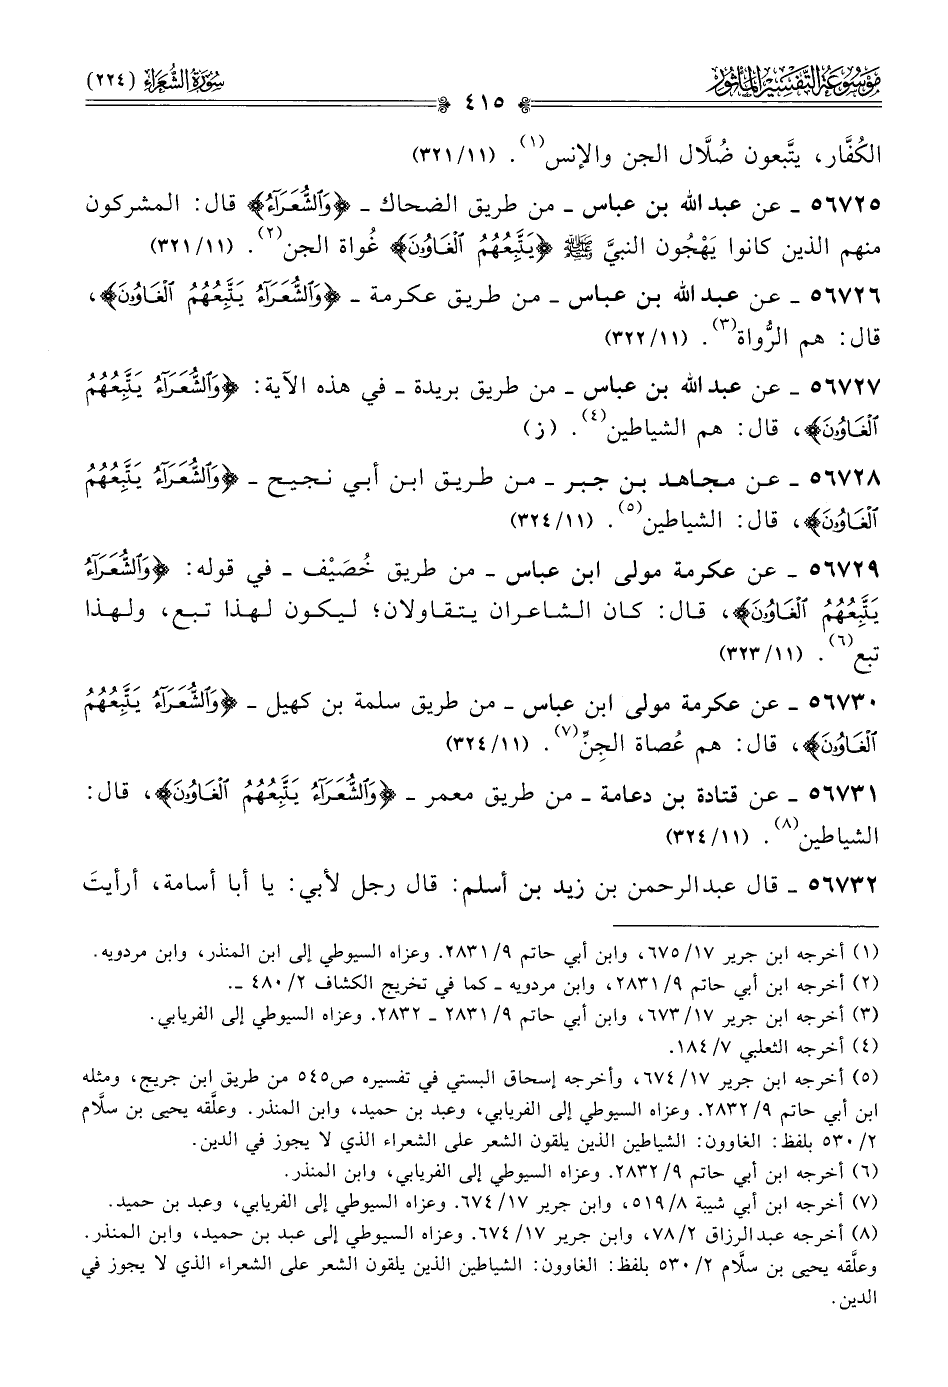 موسوعة التفسير المأثور
سورة الشعراء (٢٢٤)
٤١٥
الكُفَّار، يتَّبعون ضُلَّال الجن والإنس(١). (٣٢١/١١)
٥٦٧٢٥ ـ عن عبد الله بن عباس ـ من طريق الضحاك ـ ﴿وَٱلشُّعَرَآءُ﴾ قال: المشركون
منهم الذين كانوا يَهْجُون النبيَّ ﷺ ﴿يَتَّبِعُهُمُ ٱلْغَاوُۥنَ﴾ غُواة الجن(٢). (٣٢١/١١)
٥٦٧٢٦ ـ عن عبد الله بن عباس ـ من طريق عكرمة ـ ﴿وَٱلشُّعَرَآءُ يَتَّبِعُهُمُ ٱلْغَاوُۥنَ﴾،
قال: هم الرُّواة(٣). (٣٢٢/١١)
٥٦٧٢٧ ـ عن عبد الله بن عباس ـ من طريق بريدة ـ في هذه الآية: ﴿وَٱلشُّعَرَآءُ يَتَّبِعُهُمُ
ٱلْغَاوُۥنَ﴾، قال: هم الشياطين(٤). (ز)
٥٦٧٢٨ ـ عن مجاهد بن جبر ـ من طريق ابن أبي نجيح ـ ﴿وَٱلشُّعَرَآءُ يَتَّبِعُهُمُ
ٱلْغَاوُۥنَ﴾، قال: الشياطين(٥). (٣٢٤/١١)
٥٦٧٢٩ ـ عن عكرمة مولى ابن عباس ـ من طريق خُصَيْف ـ في قوله: ﴿وَٱلشُّعَرَآءُ
يَتَّبِعُهُمُ ٱلْغَاوُۥنَ﴾، قال: كان الشاعران يتقاولان؛ ليكون لهذا تبع، ولهذا
تبع(٦). (٣٢٣/١١)
٥٦٧٣٠ ـ عن عكرمة مولى ابن عباس ـ من طريق سلمة بن كهيل ـ ﴿وَٱلشُّعَرَآءُ يَتَّبِعُهُمُ
ٱلْغَاوُۥنَ﴾، قال: هم عُصاة الجِنِّ(٧). (٣٢٤/١١)
٥٦٧٣١ ـ عن قتادة بن دعامة ـ من طريق معمر ـ ﴿وَٱلشُّعَرَآءُ يَتَّبِعُهُمُ ٱلْغَاوُۥنَ﴾، قال:
الشياطين(٨). (٣٢٤/١١)
٥٦٧٣٢ ـ قال عبدالرحمن بن زيد بن أسلم: قال رجل لأبي: يا أبا أسامة، أرأيتَ
(١) أخرجه ابن جرير ١٧/ ٦٧٥، وابن أبي حاتم ٩/ ٢٨٣١. وعزاه السيوطي إلى ابن المنذر، وابن مردويه.
(٢) أخرجه ابن أبي حاتم ٩/ ٢٨٣١، وابن مردويه ـ كما في تخريج الكشاف ٢/ ٤٨٠ ـ.
(٣) أخرجه ابن جرير ١٧/ ٦٧٣، وابن أبي حاتم ٩/ ٢٨٣١ ـ ٢٨٣٢. وعزاه السيوطي إلى الفريابي.
(٤) أخرجه الثعلبي ٧/ ١٨٤.
(٥) أخرجه ابن جرير ١٧/ ٦٧٤، وأخرجه إسحاق البستي في تفسيره ص٥٤٥ من طريق ابن جريج، ومثله
ابن أبي حاتم ٩/ ٢٨٣٢. وعزاه السيوطي إلى الفريابي، وعبد بن حميد، وابن المنذر. وعلَّقه يحيى بن سلَّام
٢/ ٥٣٠ بلفظ: الغاوون: الشياطين الذين يلقون الشعر على الشعراء الذي لا يجوز في الدين.
(٦) أخرجه ابن أبي حاتم ٩/ ٢٨٣٢. وعزاه السيوطي إلى الفريابي، وابن المنذر.
(٧) أخرجه ابن أبي شيبة ٨/ ٥١٩، وابن جرير ١٧/ ٦٧٤. وعزاه السيوطي إلى الفريابي، وعبد بن حميد.
(٨) أخرجه عبدالرزاق ٢/ ٧٨، وابن جرير ١٧/ ٦٧٤. وعزاه السيوطي إلى عبد بن حميد، وابن المنذر.
وعلَّقه يحيى بن سلَّام ٢/ ٥٣٠ بلفظ: الغاوون: الشياطين الذين يلقون الشعر على الشعراء الذي لا يجوز في
الدين.